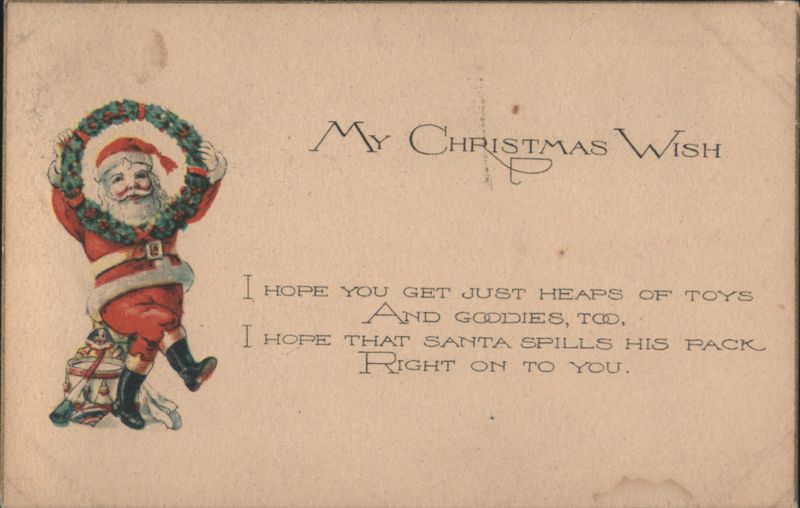 My Christmas Wish
I hope you get just heaps of toys
And goodies, too,
I hope that Santa spills his pack
Right on to you.